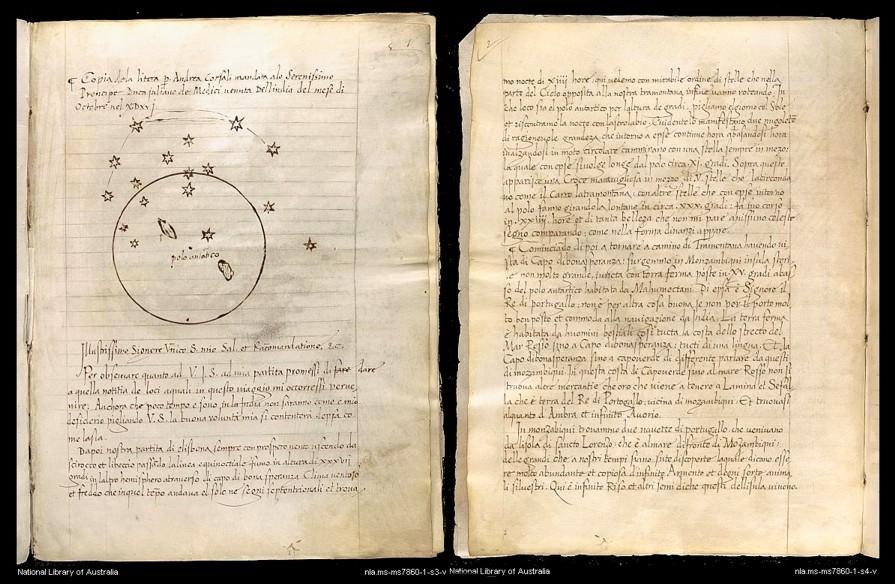 1
¶ Copia dela litera p. Andrea Corsali mandata alo Serenissimo
Principe Duca Juliano de Medici venuta Dellindia del mese di
Octobre nel XDXVJ.
polo antartico
Illustrissimo Signore Unico S. mio Sal. et Racomandatione, &c.
Per observare quanto ad V. I. S. ad mia partita promessi di fare dare
a quella notitia de loci aquali in questo viaggio mi occorressi perue
nire: Anchora che poco tempo e sono in la India non saranno come e mio
desiderio pigliando V. S. la buona volunta mia si contentera dessa co
me lassia.
Dapoi nostra partita di Lisbona sempre con prospero vento uscendo da
scirocco et libeccio passando la linea equinoctiale fumo in altura di XXXVII
gradi in laltro hemispherio atraverso di capo di bona speranza Clima ventoso
et freddo che in quel tempo andava el sole ne segni septentrionali et trova
2
mo nocte di XIIII hore: qui vedemo con mirabile ordine di stelle che nella
parte del Cielo opposita alla nostra tramontana infinite vanno rotando. In
che loco sia el polo antartico per laltura de gradi: pigliamo el giorno col Sole
et riscontramo la nocte con lastrolabio: Evidente lo manifestano due nugolette
di ragionevole grandeza che intorno a epso continue hora abassandosi hora
inalzandosi in moto circulare camminano con una stella sempre in mezo:
la quale con epse si volge longe dal polo circa XI. gradi. Sopra queste
apparisce una Croce maravigliosa in mezzo di V. stelle che la circonda
no come il Carro la tramontana con altre stelle che con epse intorno
al polo fanno girandola lontane in circa XXX. gradi: fa suo corso
in XXIIII. hore et di tanta belleza che non mi pare a nissuno celeste
segno compararlo: come nella forma dinanzi appare.
¶ Cominciando di poi a tornare a camino di Tramontana havendo vi
sta di Capo di bona speranza: surgemmo in Monzambiqui insula steri
le non molto grande, iuncta con terra ferma poste in XV. gradi abas
so del polo antartico habitata da Mahumectani. Di epsa e Signore il
Re di portugallo: non e per altra cosa buona se non per il porto mol
to ben posto et commoda alla navigatione da India. La terra ferma
e habitata da huomini bestiali cosi tucta la costa dello strecto del
Mar Rosso sino a Capo di bona speranza: tucti di una lingua. Et la
Capo di bona speranza sino a capo verde di differente parlare da questi
di mozambiqui. In questa costa di Capo verde sino al mare Rosso non si
truova altre mercantie che oro che viene a tenere a Lamina et Sefal
la che e terra del Re di Portogallo: vicina di mozambiqui: Et truovasi
alquanto d'Ambra et infinito Avorio.
In monzabiqui trovammo due navette di portugallo che venivano
da lisola di sancto Lorenzo: che e al mare difronte di Mozambiqui:
delle grandi che a nostri tempi siano sute discoperte: laquale dicono esse
re molto abundante et copiosa d'infinito Argento et dogni sorte anima
li silvestri. Qui e infinito Riso et altri semi di che questi dellisula vivono.
National Library of Australia
nla.ms-ms7860-1-s3-v
National Library of Australia
nla.ms-ms7860-1-s4-v